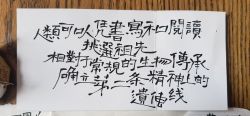 人類可以凭書寫和閱讀
挑選祖先
相對于常規的生物傳承
确立第二条精神上的
遺傳线